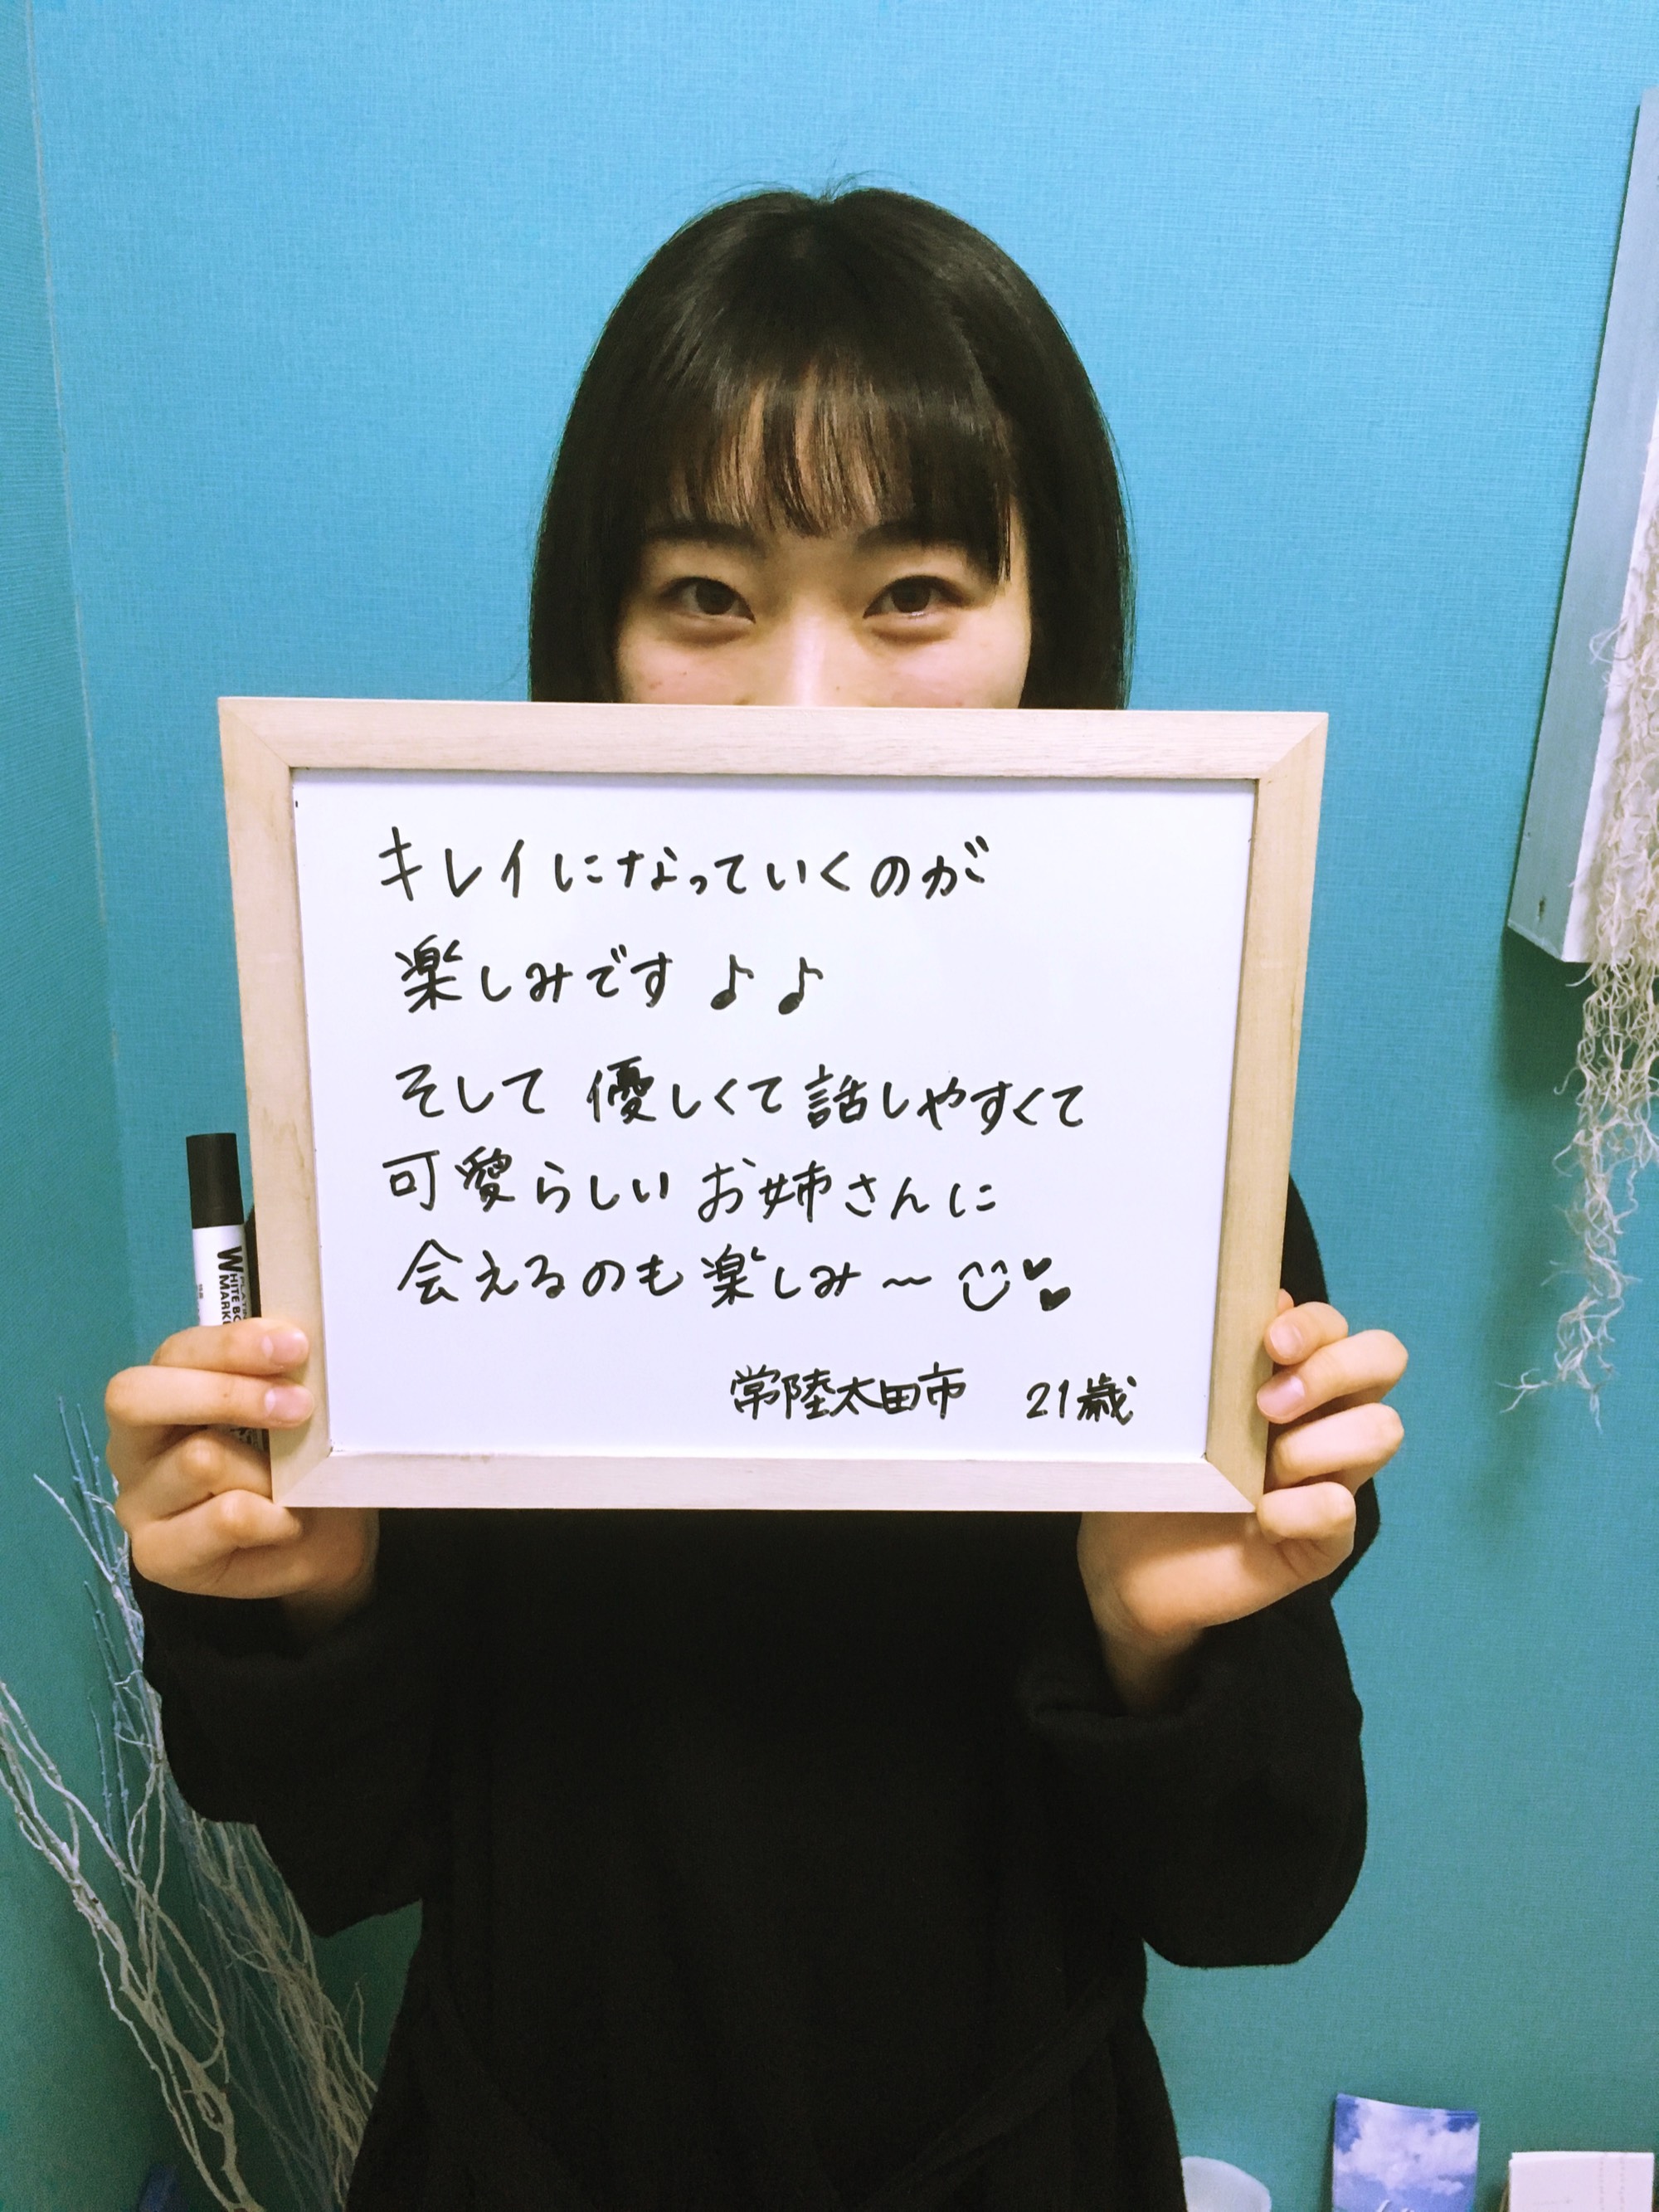 キレイになっていくのが
楽しみです♪♪
そして 優しくて話しやすくて
可愛らしいお姉さんに
会えるのも楽しみ〜
常陸太田市 21歳
WHITE BO
MARK